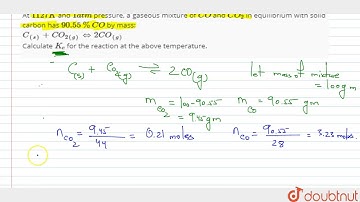 At 1127 K and 1 atm pressure, a gaseous mixture of CO and CO2 in equilibrium with solid
carbon has 90.55 % CO by mass:
C(s) + CO2(g) ⇔ 2CO(g)
Calculate Kc for the reaction at the above temperature.
C(s) + CO2(g) ⇌ 2CO(g) let mass of mixture
= 100 gm
mCO2 = 100-90.55 mCO = 90.55 gm
= 9.45 gm
nCO2 = 9.45/44 = 0.21 moles nCO = 90.55/28 = 3.23 moles.
doubtnut